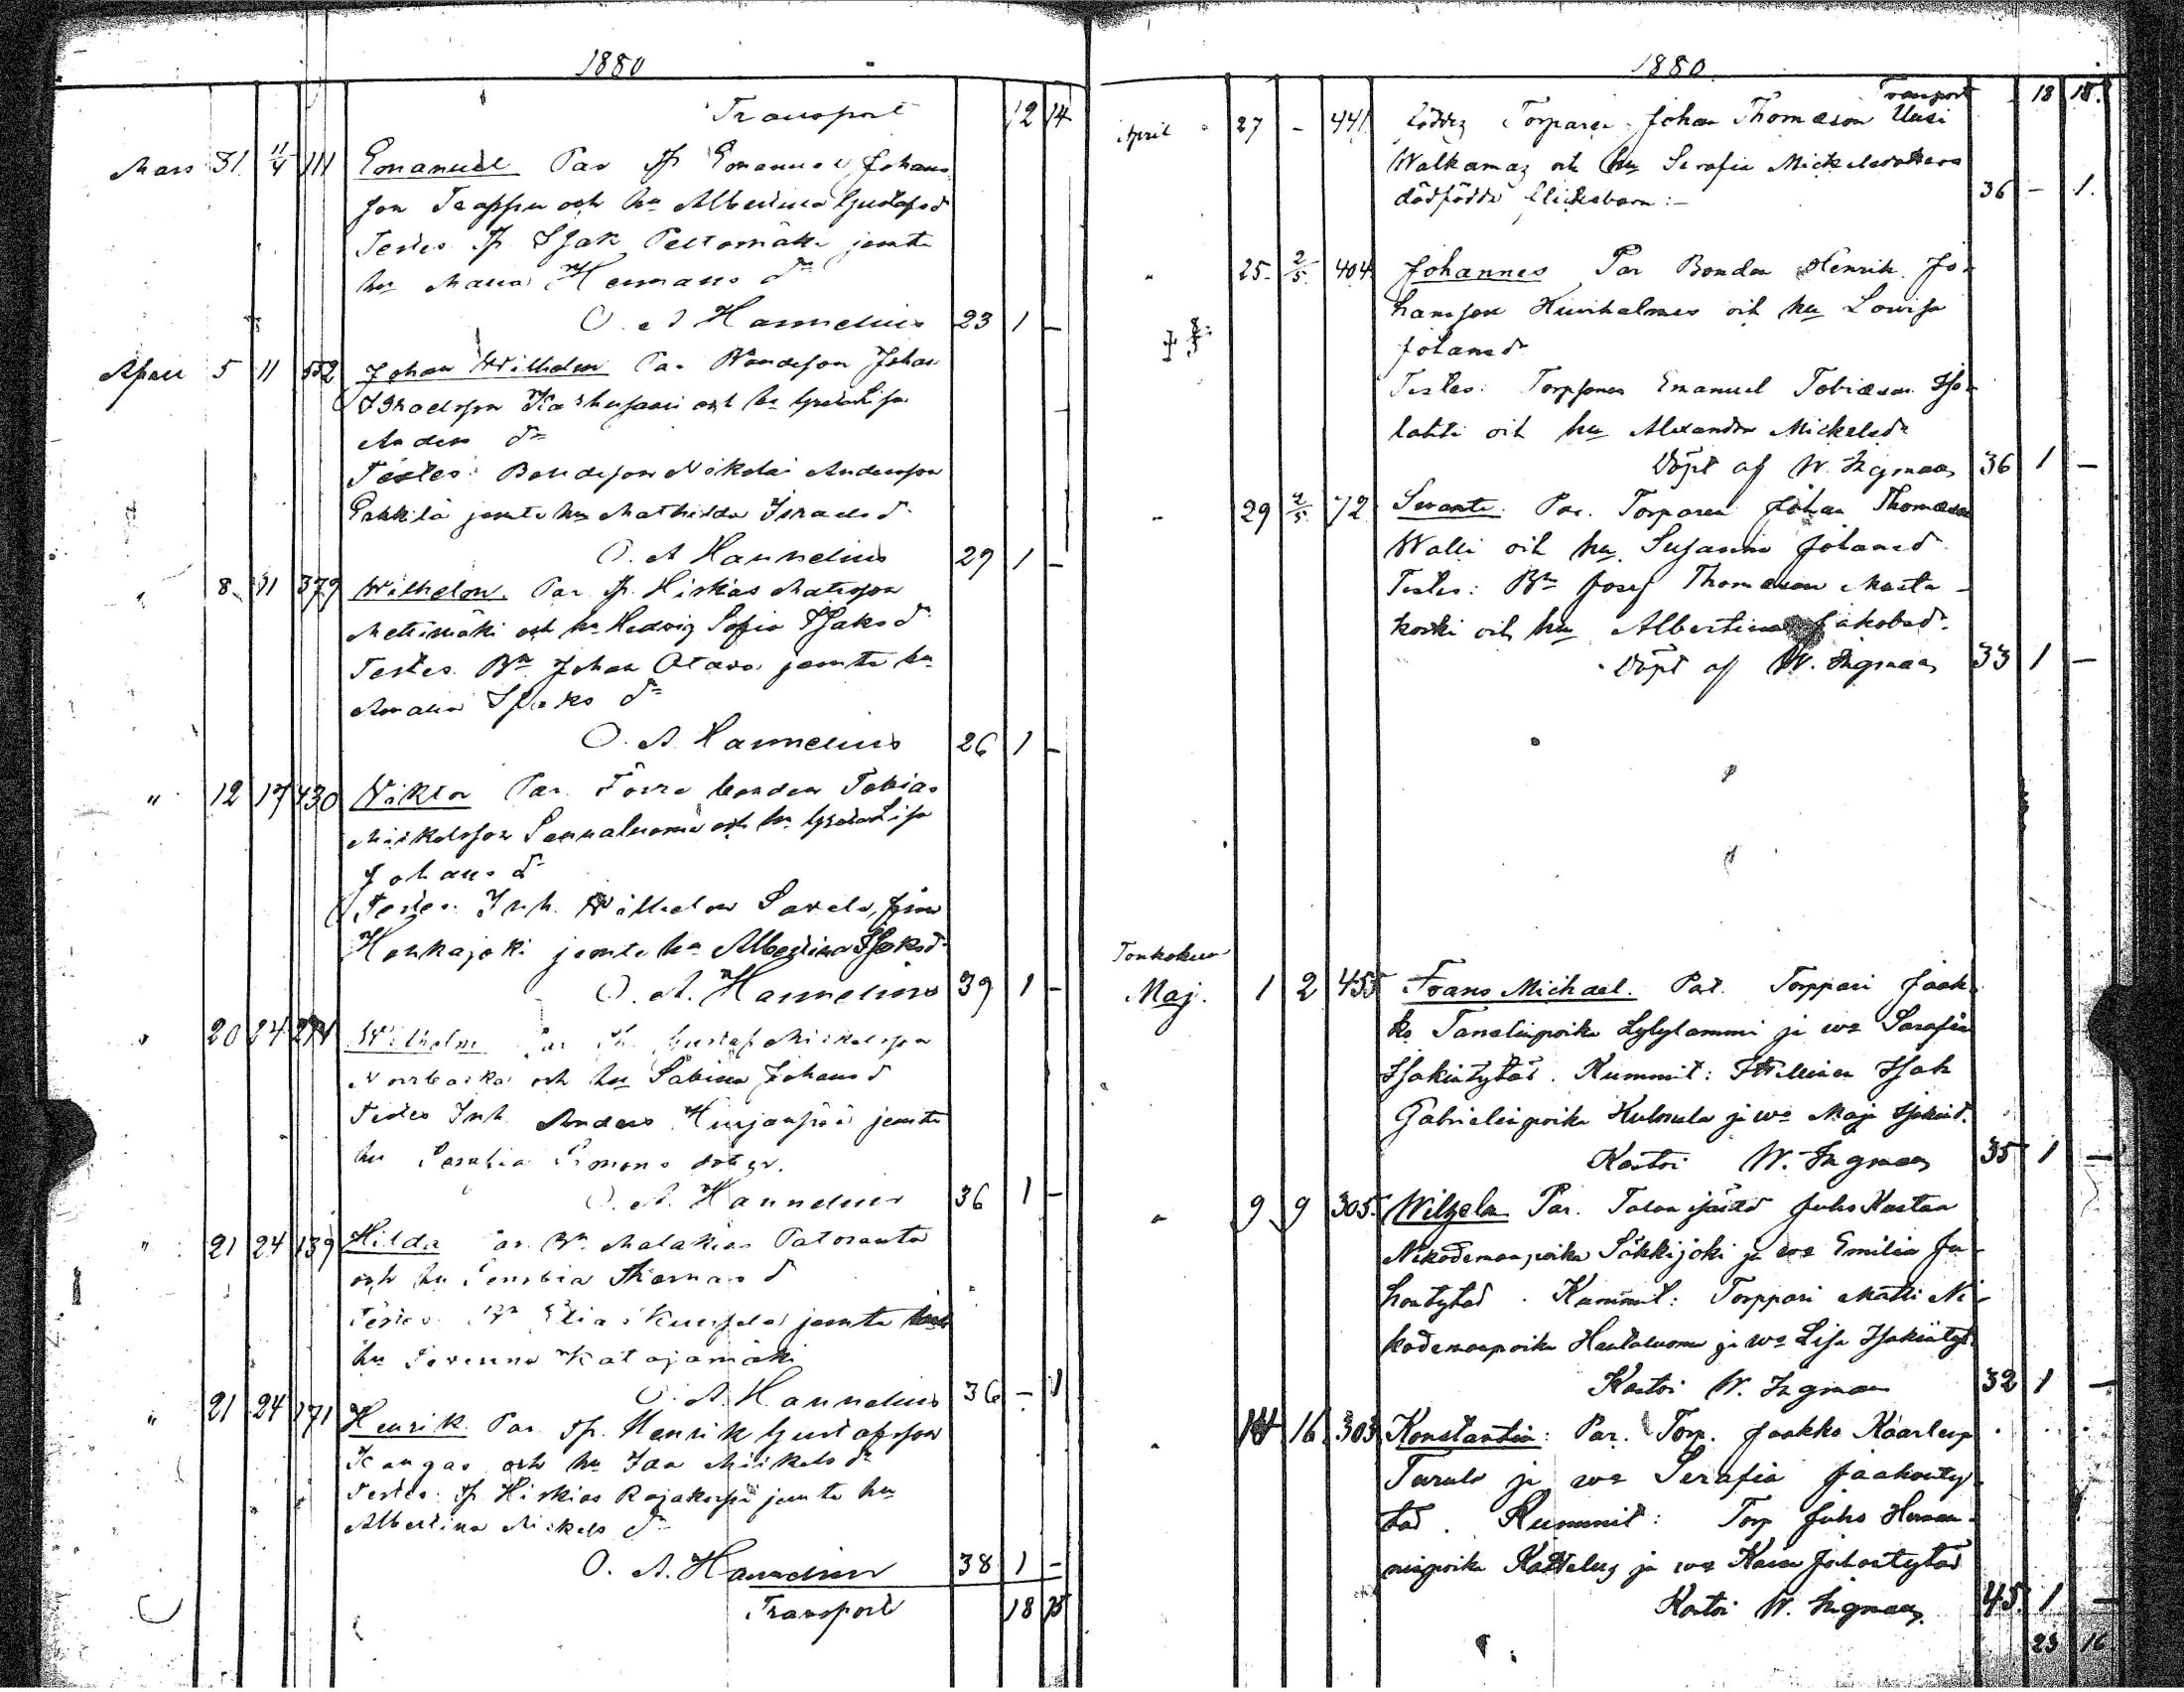 1880
Transport 12 14
Mars 31 11/4 111 Emanuel Par Ip Emanuel Johans
son Trappu och hu Albertina Gustafsd
Testes Ip Isak Peltomäki jemte
hu Maria Hermans dr
O. A Hannelius 23 1 –
April 5 11 552 Johan Wilhelm Par Bondeson Johan
Israelsson Karhusaari och hu Greta Lisa
Anders dr
Testes: Bondeson Nikolai Andersson
jemte hu Mathilda Israelsd
O. A Hannelius 29 1 –
" 8 11 379 Wilhelm. Par Ip. Hiskias Matsson
Metsämäki och hu Hedvig Sofia Isaksd
Testes. Bn Johan Otava jemte hu
Amalia Isaks dr
O. A. Hannelius 26 1 –
" 12 17 430 Viktor Par. Förra bonden Tobias
Mickelsson och hu Greta Lisa
Johans dr
Testes. Inh. Wilhelm Savela, från
Honkajoki jemte hu Albertina Isaksd
O. A. Hannelius 39 1 –
" 20 24 271 Wilhelm Par Gustaf Mickelsson
Norrbacka och hu Sabina Johansd
Testes Inh. Anders Hirjanpää jemte
hu Simons dotter.
O. A. Hannelius 36 1 –
" 21 24 139 Hilda Par. Bn. Malakias Patoranta
och hu Thomas d
Testes. Bn Elias jemte
hu Katajamäki
O. A. Hannelius 36 – 1
" 21 24 171 Henrik. Par Ip. Henrik Gustafsson
Kangas och hu Ida Mickels dr
Testes: Ip Hiskias Rajakorpi jemte hu
Albertina Mickels dr
O. A. Hannelius 38 1 –
Transport 18 15
1880.
Transport 18 15.
April 27 – 441 Torparen Johan Thomasson Uusi
Walkama och hu Serafia Mickelsdotters
dödfödda flickebarn:– 36 – 1.
" 25. 2/5 404 Johannes Par Bonden Henrik Jo-
hansson och hu Lovisa
Johansdr
Testes: Torpsonen Emanuel Tobiasson Iso-
lahti och hu Alexandra Mickelsdr
Döpt af W. Ingman 36 1 –
" 29 2/5 72 Svante. Par. Torparen Johan Thomasson
Walli och hu Susanna Johansd
Testes: Bn Josef Thomasson Musta-
koski och hu Albertina Jakobsdr.
Döpt af W. Ingman 33 1 –
Toukokuu
Maj. 1 2 455 Frans Michael. Par. Torppari Jaak-
ko Tanelinpoika Lylylammi ja wo Serafia
Isakintytär. Kummit: Itsellinen Isak
Gabrielinpoika ja wo Maja Isakind.
Kastoi W. Ingman 35 1 –
" 9 9 305. Wilhelm Par. Talon isäntä Juho Kustaa
Nikodemanpoika Säkkijoki ja wo Emilia Ju-
hontytär. Kummit: Torppari Matti Ni-
kodemanpoika Hautaluoma ja wo Lisa Isakintyt.
Kastoi W. Ingman 32 1 –
" 14 16 303 Konstantin: Par. Torp. Jaakko Kaarlenp
ja wo Serafia Jaakonty-
tär. Kummit: Torp Juho Herman-
ninpoika Kattelus ja wo Kaisa Juhontytär
Kastoi W. Ingman. 45. 1 –
23 16